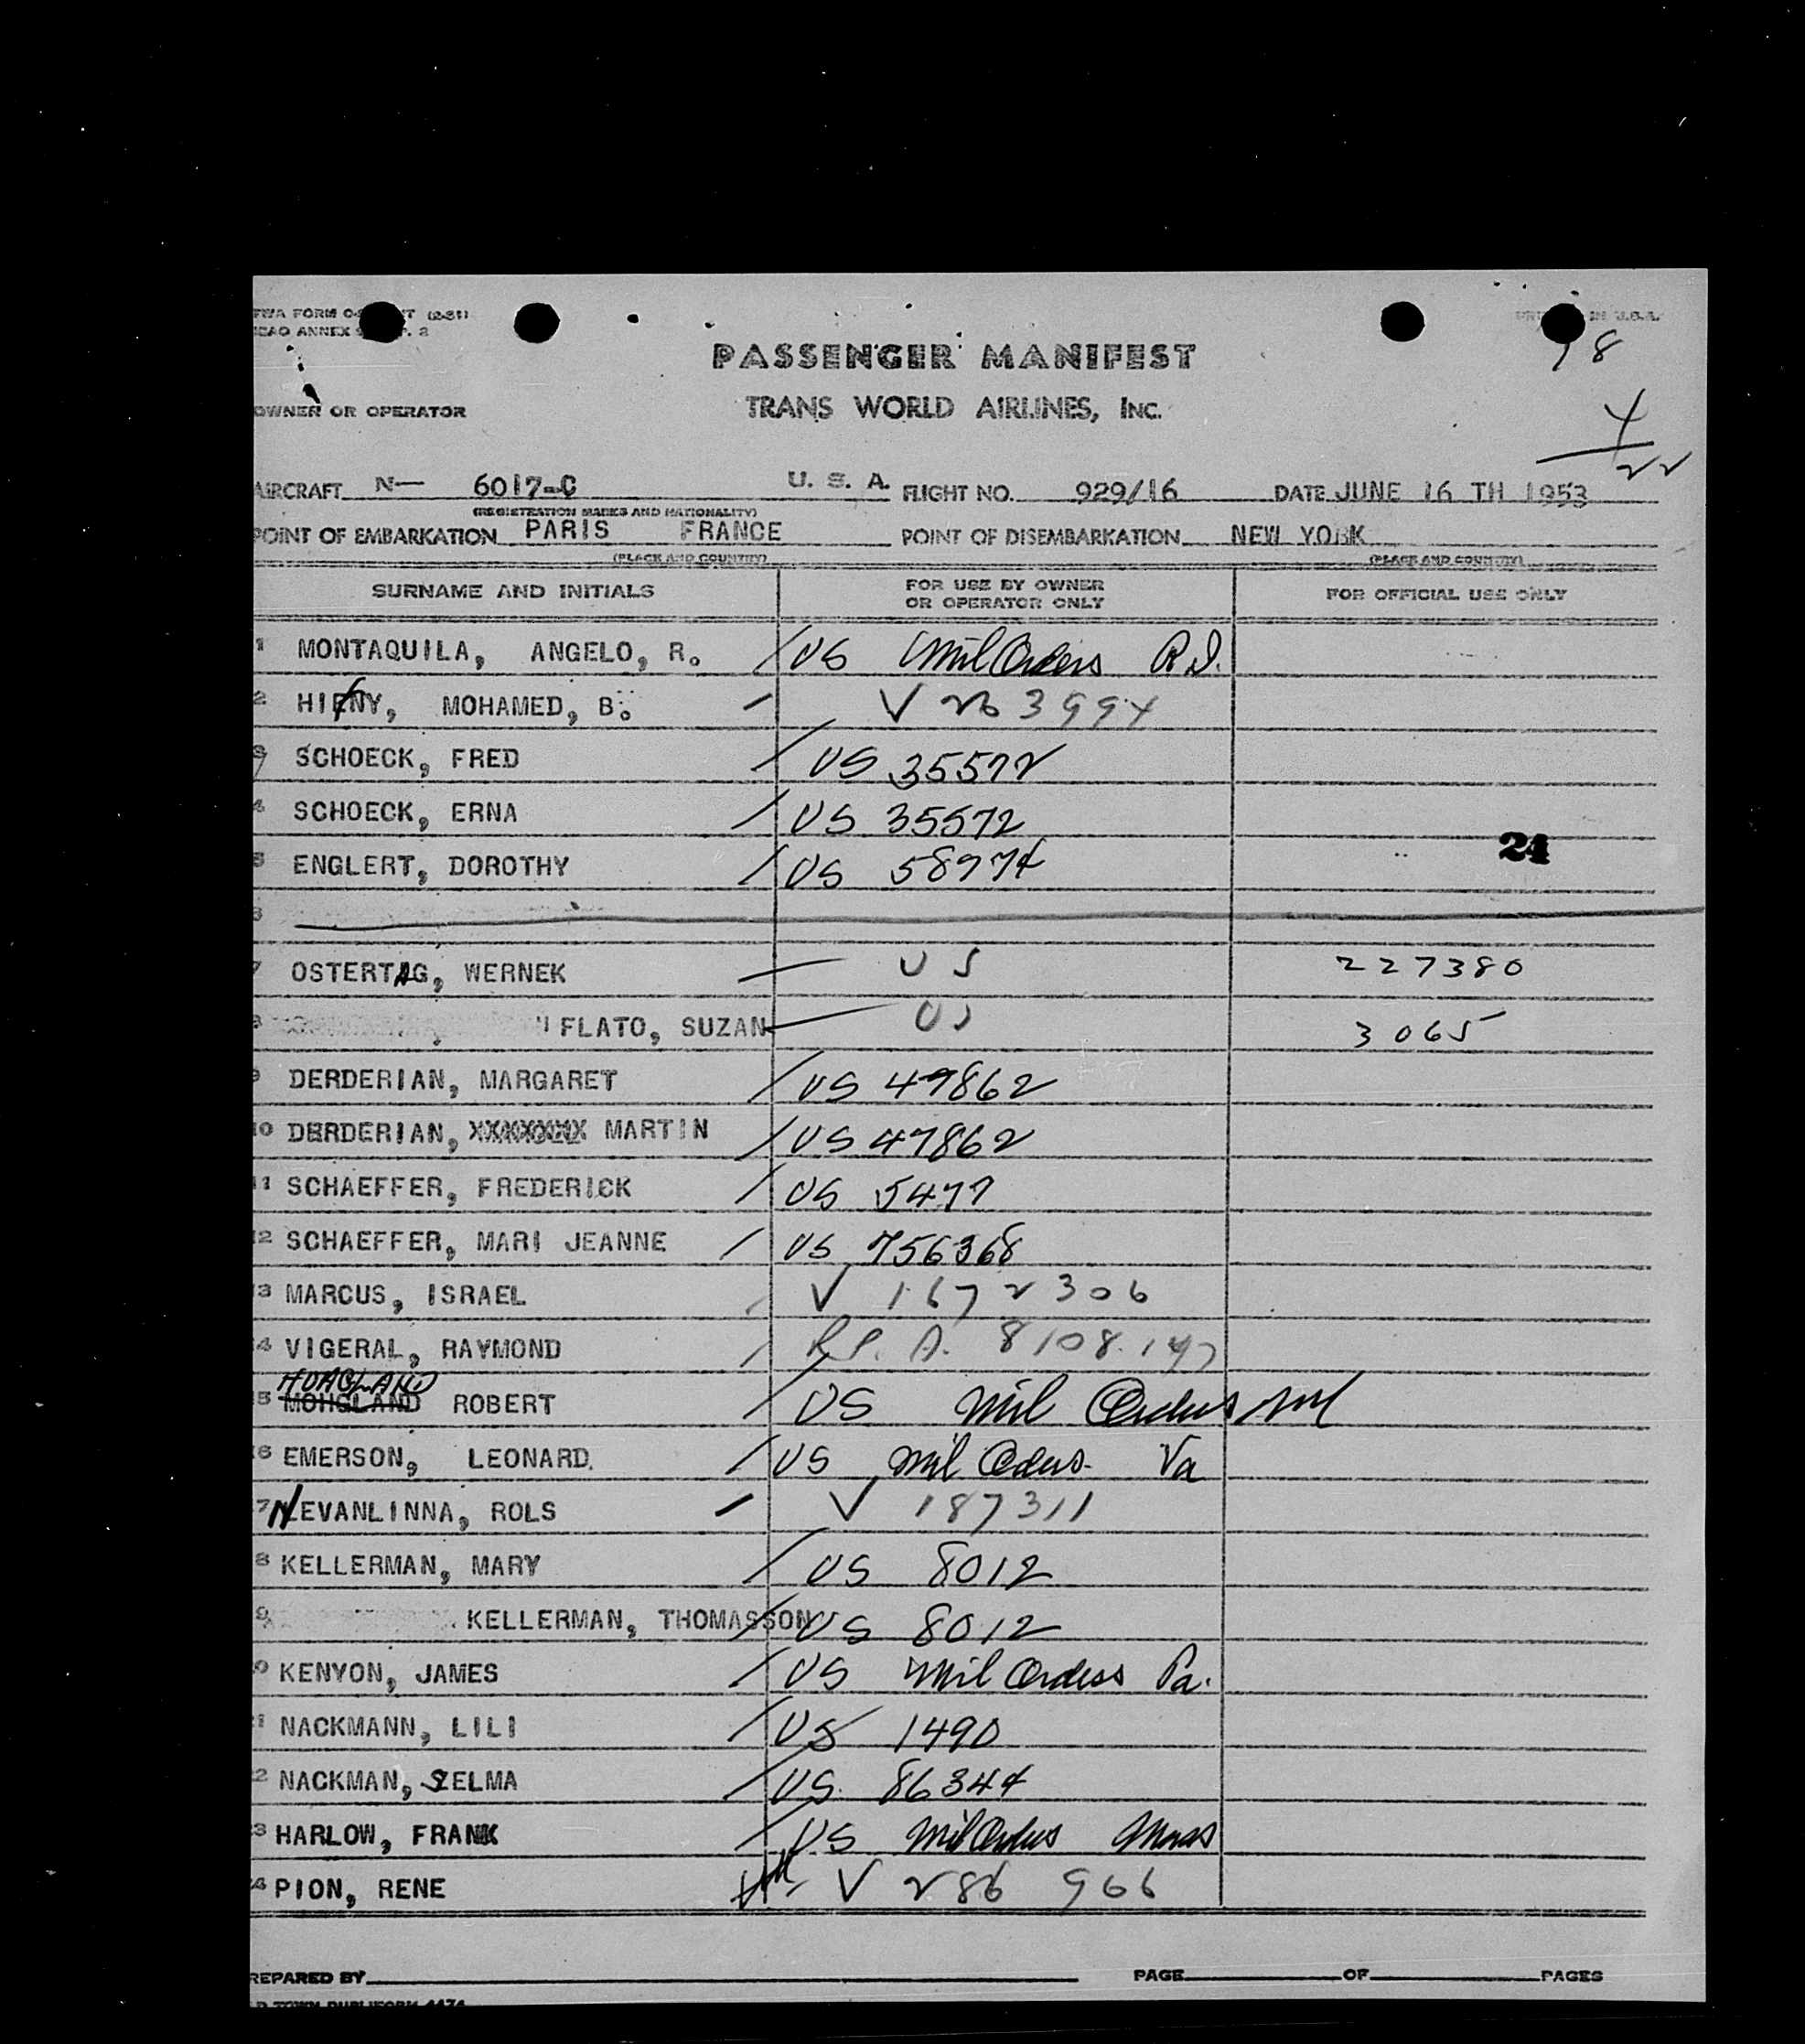 TWA FORM O- T (2-51)
ICAO ANNEX 9 . 2
PRI IN U.S.A.
18
PASSENGER MANIFEST
OWNER OR OPERATOR TRANS WORLD AIRLINES, INC.
4
22
AIRCRAFT N— 6017-C U. S. A. FLIGHT NO. 929/16 DATE JUNE 16 TH 1953
(REGISTRATION MARKS AND NATIONALITY)
POINT OF EMBARKATION PARIS FRANCE POINT OF DISEMBARKATION NEW YORK
(PLACE AND COUNTRY) (PLACE AND COUNTRY)
SURNAME AND INITIALS FOR USE BY OWNER OR OPERATOR ONLY FOR OFFICIAL USE ONLY
1 MONTAQUILA, ANGELO, R. / US Mil Orders R.I.
2 HIFNY, MOHAMED, B. V 263994
3 SCHOECK, FRED / US 35572
4 SCHOECK, ERNA / US 35572
5 ENGLERT, DOROTHY / US 58974
24
6
7 OSTERTAG, WERNEK — US 227380
8 FLATO, SUZAN — US 3065
9 DERDERIAN, MARGARET / US 47862
10 DERDERIAN, XXXXXXXX MARTIN / US 47862
11 SCHAEFFER, FREDERICK / US 5477
12 SCHAEFFER, MARI JEANNE / US 756368
13 MARCUS, ISRAEL / V 1672306
14 VIGERAL, RAYMOND / R.P. A. 8108.147
HOAGLAND
15 MOHGLAND ROBERT / US Mil Orders
16 EMERSON, LEONARD. / US Mil Orders Va
17 NEVANLINNA, ROLS — V 187311
18 KELLERMAN, MARY / US 8012
19 KELLERMAN, THOMASSON / US 8012
20 KENYON, JAMES / US Mil Orders Pa.
21 NACKMANN, LILI / US 1490
22 NACKMAN, SELMA / US 86344
23 HARLOW, FRANK / US Mil Orders Mass
24 PION, RENE V 286 966
REPARED BY PAGE OF PAGES